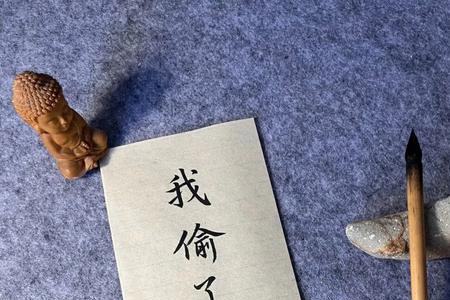 我偷了